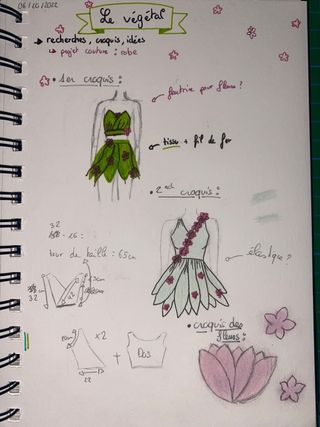 06/10/2022
Le végétal
→ recherches, croquis, idées
↳ projet couture : robe
• 1er croquis :
feutrine pour fleurs ?
tissu + fil de fer
• 2nd croquis :
32
16 :
tour de taille : 65cm
32
élastique ?
• croquis des
fleurs :
x2
+
Dos
12